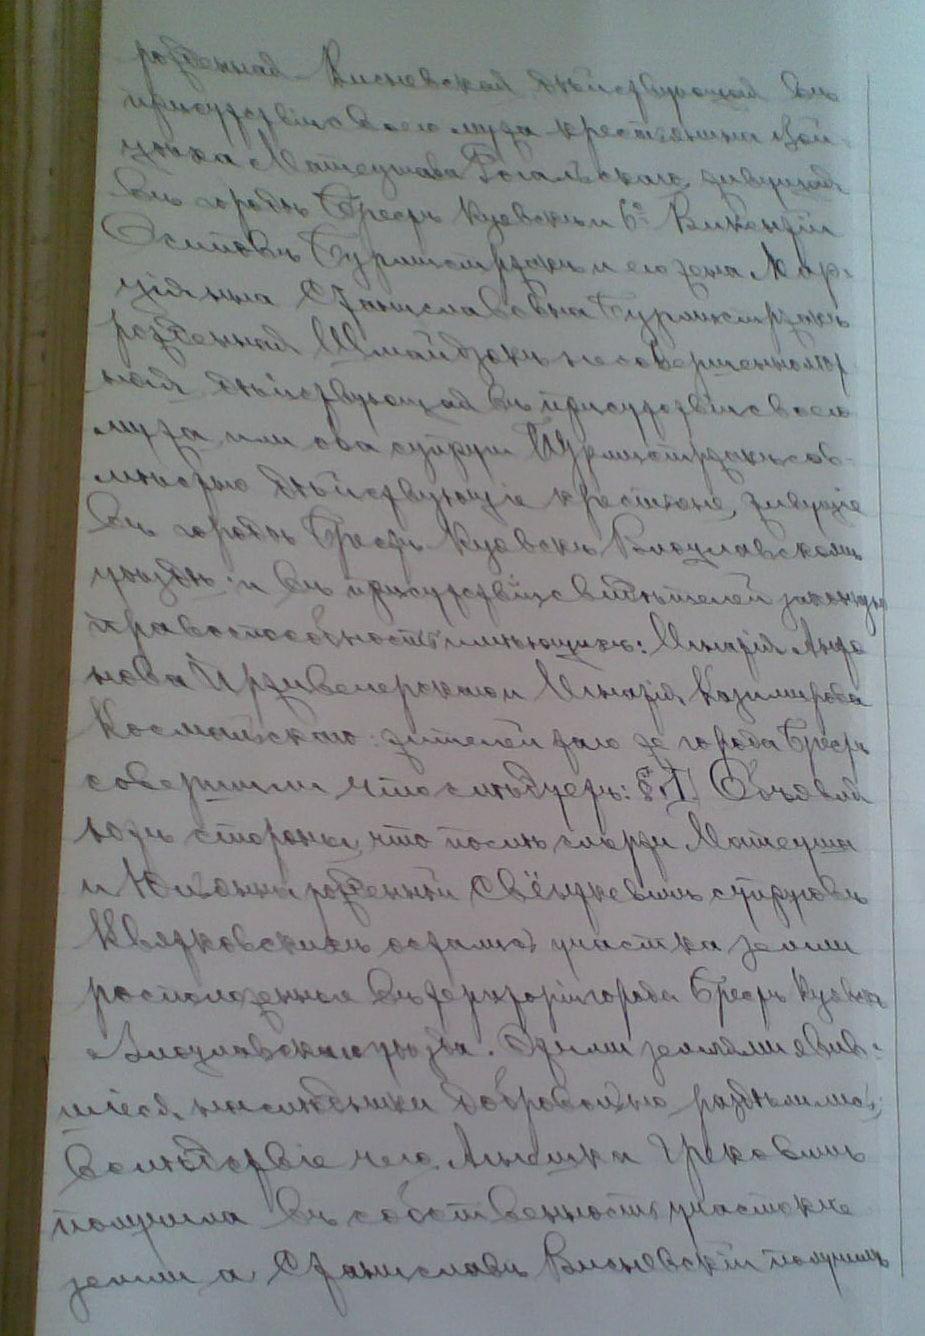 рожденная Висневская дѣйствующая въ
присутствіи своего мужа крестьянина Вой-
цѣха Матеушова Рогальскаго, живущая
въ городѣ Брестъ Куявскъ и 6º Викентій
Осиповъ Бурмистржакъ и его жена Мар-
ціянна Станиславовна Бурмистржакъ
рожденная Шмайдзакъ несовершеннолѣт-
няя дѣйствующая въ присутствіи своего
мужа или оба супруги Бурмистржакъ сов-
мѣстно дѣйствующіе крестьяне, живущіе
въ городѣ Брестъ Куявскъ Влоцлавскомъ
уѣздѣ и въ присутствіи свидѣтелей законную
правоспособность имѣющихъ: Игнатія Анто-
нова и Игнатія Казимірова
Космальскаго жителей того же города Брестъ
совершили что слѣдуетъ: § 1. Объявля
ютъ стороны, что послѣ смерти Матеуша
и Юліанны рожденной супруговъ
Квятковскихъ остались участка земли
расположенные въ территоріи города Брестъ Куявскъ
Влоцлавскаго уѣзда. Этими землями явив-
шіеся наслѣдники добровольно раздѣлились,
вслѣдствіе чего Агнешка
получила въ собственность участокъ
земли а Станиславъ Висневскій получилъ